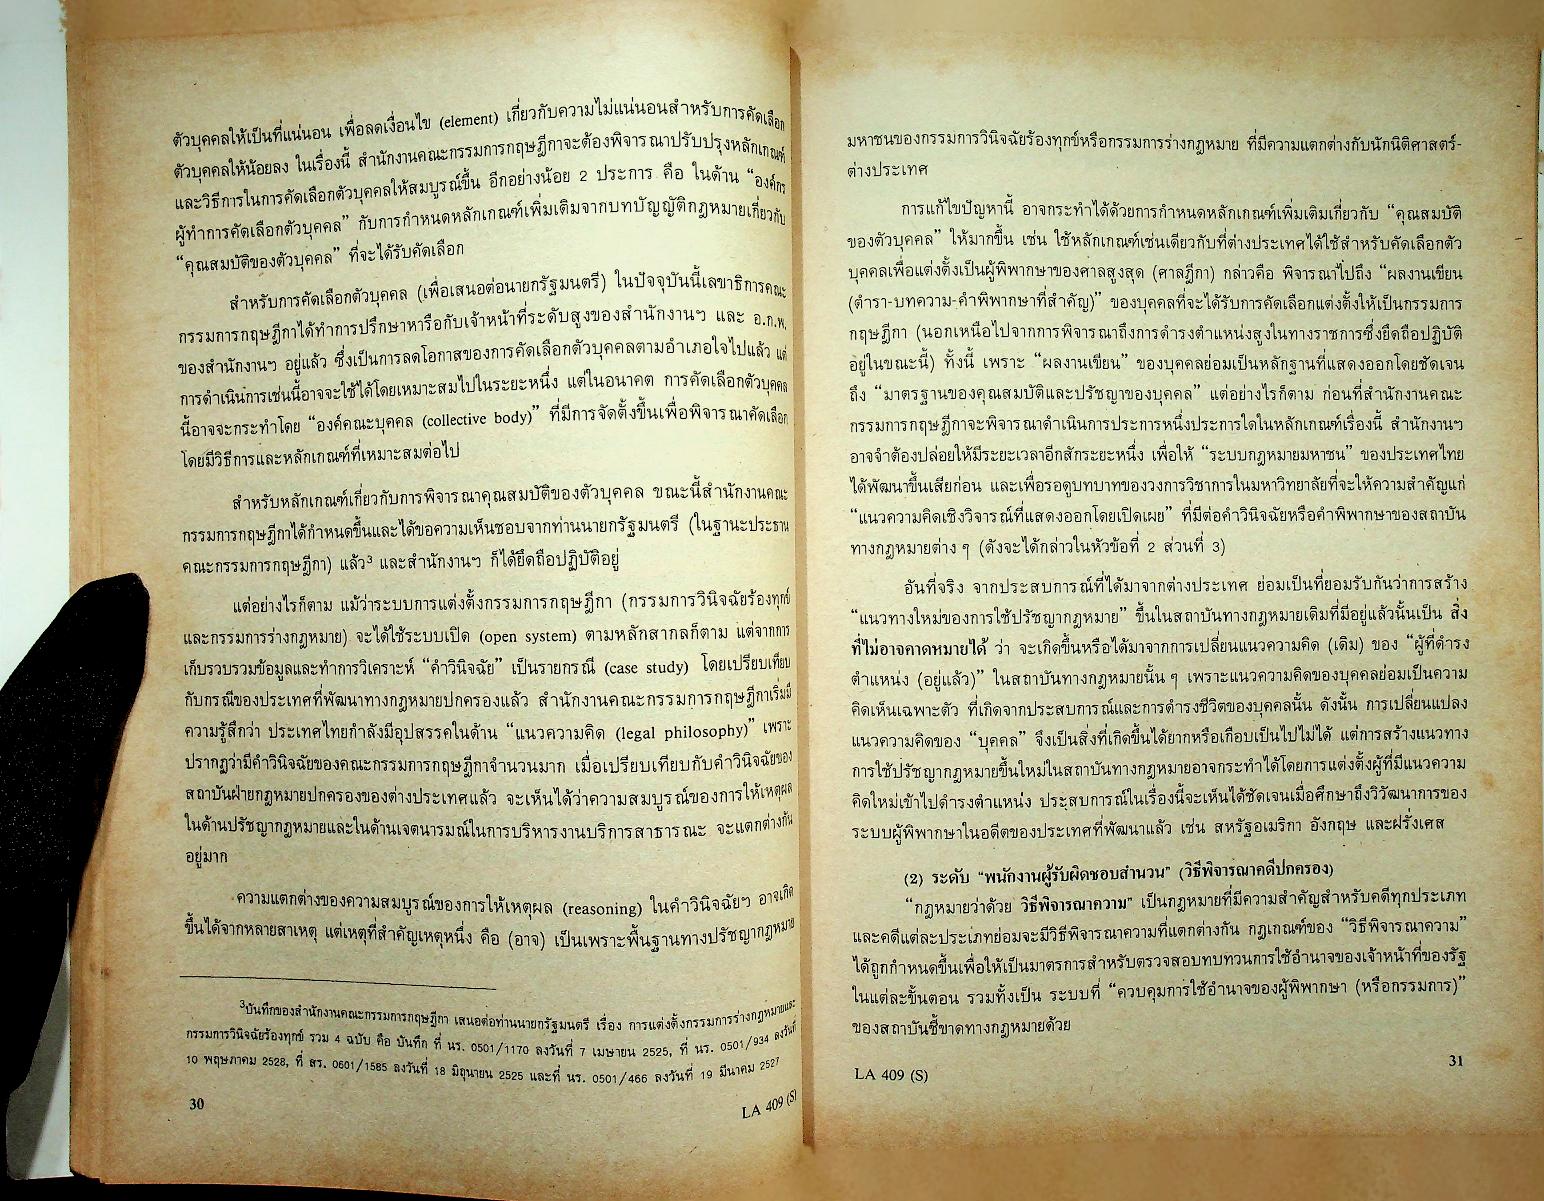 ตัวบุคคลให้เป็นที่แน่นอน เพื่อลดเงื่อนไข (element) เกี่ยวกับความไม่แน่นอนสำหรับการคัดเลือก
ตัวบุคคลให้น้อยลง ในเรื่องนี้ สำนักงานคณะกรรมการกฤษฎีกาจะต้องพิจารณาปรับปรุงหลักเกณฑ์
และวิธีการในการคัดเลือกตัวบุคคลให้สมบูรณ์ขึ้น อีกอย่างน้อย 2 ประการ คือ ในด้าน “องค์กร
ผู้ทำการคัดเลือกตัวบุคคล” กับการกำหนดหลักเกณฑ์เพิ่มเติมจากบทบัญญัติกฎหมายเกี่ยวกับ
“คุณสมบัติของตัวบุคคล” ที่จะได้รับคัดเลือก
สำหรับการคัดเลือกตัวบุคคล (เพื่อเสนอต่อนายกรัฐมนตรี) ในปัจจุบันนี้เลขาธิการคณะ
กรรมการกฤษฎีกาได้ทำการปรึกษาหารือกับเจ้าหน้าที่ระดับสูงของสำนักงานฯ และ อ.ก.พ.
ของสำนักงานฯ อยู่แล้ว ซึ่งเป็นการลดโอกาสของการคัดเลือกตัวบุคคลตามอำเภอใจไปแล้ว แต่
การดำเนินการเช่นนี้อาจจะใช้ได้โดยเหมาะสมไปในระยะหนึ่ง แต่ในอนาคต การคัดเลือกตัวบุคคล
นี้อาจจะกระทำโดย “องค์คณะบุคคล (collective body)” ที่มีการจัดตั้งขึ้นเพื่อพิจารณาคัดเลือก
โดยมีวิธีการและหลักเกณฑ์ที่เหมาะสมต่อไป
สำหรับหลักเกณฑ์เกี่ยวกับการพิจารณาคุณสมบัติของตัวบุคคล ขณะนี้สำนักงานคณะ
กรรมการกฤษฎีกาได้กำหนดขึ้นและได้ขอความเห็นชอบจากท่านนายกรัฐมนตรี (ในฐานะประธาน
คณะกรรมการกฤษฎีกา) แล้ว³ และสำนักงานฯ ก็ได้ยึดถือปฏิบัติอยู่
แต่อย่างไรก็ตาม แม้ว่าระบบการแต่งตั้งกรรมการกฤษฎีกา (กรรมการวินิจฉัยร้องทุกข์
และกรรมการร่างกฎหมาย) จะได้ใช้ระบบเปิด (open system) ตามหลักสากลก็ตาม แต่จากการ
เก็บรวบรวมข้อมูลและทำการวิเคราะห์ “คำวินิจฉัย” เป็นรายกรณี (case study) โดยเปรียบเทียบ
กับกรณีของประเทศที่พัฒนาทางกฎหมายปกครองแล้ว สำนักงานคณะกรรมการกฤษฎีกาเริ่มมี
ความรู้สึกว่า ประเทศไทยกำลังมีอุปสรรคในด้าน “แนวความคิด (legal philosophy)” เพราะ
ปรากฏว่ามีคำวินิจฉัยของคณะกรรมการกฤษฎีกาจำนวนมาก เมื่อเปรียบเทียบกับคำวินิจฉัยของ
สถาบันฝ่ายกฎหมายปกครองของต่างประเทศแล้ว จะเห็นได้ว่าความสมบูรณ์ของการให้เหตุผล
ในด้านปรัชญากฎหมายและในด้านเจตนารมณ์ในการบริหารงานบริการสาธารณะ จะแตกต่างกัน
อยู่มาก
ความแตกต่างของความสมบูรณ์ของการให้เหตุผล (reasoning) ในคำวินิจฉัยฯ อาจเกิด
ขึ้นได้จากหลายสาเหตุ แต่เหตุที่สำคัญเหตุหนึ่ง คือ (อาจ) เป็นเพราะพื้นฐานทางปรัชญากฎหมาย
³บันทึกของสำนักงานคณะกรรมการกฤษฎีกา เสนอต่อท่านนายกรัฐมนตรี เรื่อง การแต่งตั้งกรรมการร่างกฎหมายและ
กรรมการวินิจฉัยร้องทุกข์ รวม 4 ฉบับ คือ บันทึก ที่ นร. 0501/1170 ลงวันที่ 7 เมษายน 2525, ที่ นร. 0501/934 ลงวันที่
10 พฤษภาคม 2528, ที่ สร. 0601/1585 ลงวันที่ 18 มิถุนายน 2525 และที่ นร. 0501/466 ลงวันที่ 19 มีนาคม 2527
30
LA 409 (S)
มหาชนของกรรมการวินิจฉัยร้องทุกข์หรือกรรมการร่างกฎหมาย ที่มีความแตกต่างกับนักนิติศาสตร์-
ต่างประเทศ
การแก้ไขปัญหานี้ อาจกระทำได้ด้วยการกำหนดหลักเกณฑ์เพิ่มเติมเกี่ยวกับ “คุณสมบัติ
ของตัวบุคคล” ให้มากขึ้น เช่น ใช้หลักเกณฑ์เช่นเดียวกับที่ต่างประเทศได้ใช้สำหรับคัดเลือกตัว
บุคคลเพื่อแต่งตั้งเป็นผู้พิพากษาของศาลสูงสุด (ศาลฎีกา) กล่าวคือ พิจารณาไปถึง “ผลงานเขียน
(ตำรา-บทความ-คำพิพากษาที่สำคัญ)” ของบุคคลที่จะได้รับการคัดเลือกแต่งตั้งให้เป็นกรรมการ
กฤษฎีกา (นอกเหนือไปจากการพิจารณาถึงการดำรงตำแหน่งสูงในทางราชการซึ่งยึดถือปฏิบัติ
อยู่ในขณะนี้) ทั้งนี้ เพราะ “ผลงานเขียน” ของบุคคลย่อมเป็นหลักฐานที่แสดงออกโดยชัดเจน
ถึง “มาตรฐานของคุณสมบัติและปรัชญาของบุคคล” แต่อย่างไรก็ตาม ก่อนที่สำนักงานคณะ
กรรมการกฤษฎีกาจะพิจารณาดำเนินการประการหนึ่งประการใดในหลักเกณฑ์เรื่องนี้ สำนักงานฯ
อาจจำต้องปล่อยให้มีระยะเวลาอีกสักระยะหนึ่ง เพื่อให้ “ระบบกฎหมายมหาชน” ของประเทศไทย
ได้พัฒนาขึ้นเสียก่อน และเพื่อรอดูบทบาทของวงการวิชาการในมหาวิทยาลัยที่จะให้ความสำคัญแก่
“แนวความคิดเชิงวิจารณ์ที่แสดงออกโดยเปิดเผย” ที่มีต่อคำวินิจฉัยหรือคำพิพากษาของสถาบัน
ทางกฎหมายต่าง ๆ (ดังจะได้กล่าวในหัวข้อที่ 2 ส่วนที่ 3)
อันที่จริง จากประสบการณ์ที่ได้มาจากต่างประเทศ ย่อมเป็นที่ยอมรับกันว่าการสร้าง
“แนวทางใหม่ของการใช้ปรัชญากฎหมาย” ขึ้นในสถาบันทางกฎหมายเดิมที่มีอยู่แล้วนั้นเป็น สิ่ง
ที่ไม่อาจคาดหมายได้ ว่า จะเกิดขึ้นหรือได้มาจากการเปลี่ยนแนวความคิด (เดิม) ของ “ผู้ที่ดำรง
ตำแหน่ง (อยู่แล้ว)” ในสถาบันทางกฎหมายนั้น ๆ เพราะแนวความคิดของบุคคลย่อมเป็นความ
คิดเห็นเฉพาะตัว ที่เกิดจากประสบการณ์และการดำรงชีวิตของบุคคลนั้น ดังนั้น การเปลี่ยนแปลง
แนวความคิดของ “บุคคล” จึงเป็นสิ่งที่เกิดขึ้นได้ยากหรือเกือบเป็นไปไม่ได้ แต่การสร้างแนวทาง
การใช้ปรัชญากฎหมายขึ้นใหม่ในสถาบันทางกฎหมายอาจกระทำได้โดยการแต่งตั้งผู้ที่มีแนวความ
คิดใหม่เข้าไปดำรงตำแหน่ง ประสบการณ์ในเรื่องนี้จะเห็นได้ชัดเจนเมื่อศึกษาถึงวิวัฒนาการของ
ระบบผู้พิพากษาในอดีตของประเทศที่พัฒนาแล้ว เช่น สหรัฐอเมริกา อังกฤษ และฝรั่งเศส
(2) ระดับ “พนักงานผู้รับผิดชอบสำนวน” (วิธีพิจารณาคดีปกครอง)
“กฎหมายว่าด้วย วิธีพิจารณาความ” เป็นกฎหมายที่มีความสำคัญสำหรับคดีทุกประเภท
และคดีแต่ละประเภทย่อมจะมีวิธีพิจารณาความที่แตกต่างกัน กฎเกณฑ์ของ “วิธีพิจารณาความ”
ได้ถูกกำหนดขึ้นเพื่อให้เป็นมาตรการสำหรับตรวจสอบทบทวนการใช้อำนาจของเจ้าหน้าที่ของรัฐ
ในแต่ละขั้นตอน รวมทั้งเป็น ระบบที่ “ควบคุมการใช้อำนาจของผู้พิพากษา (หรือกรรมการ)”
ของสถาบันชี้ขาดทางกฎหมายด้วย
LA 409 (S)
31